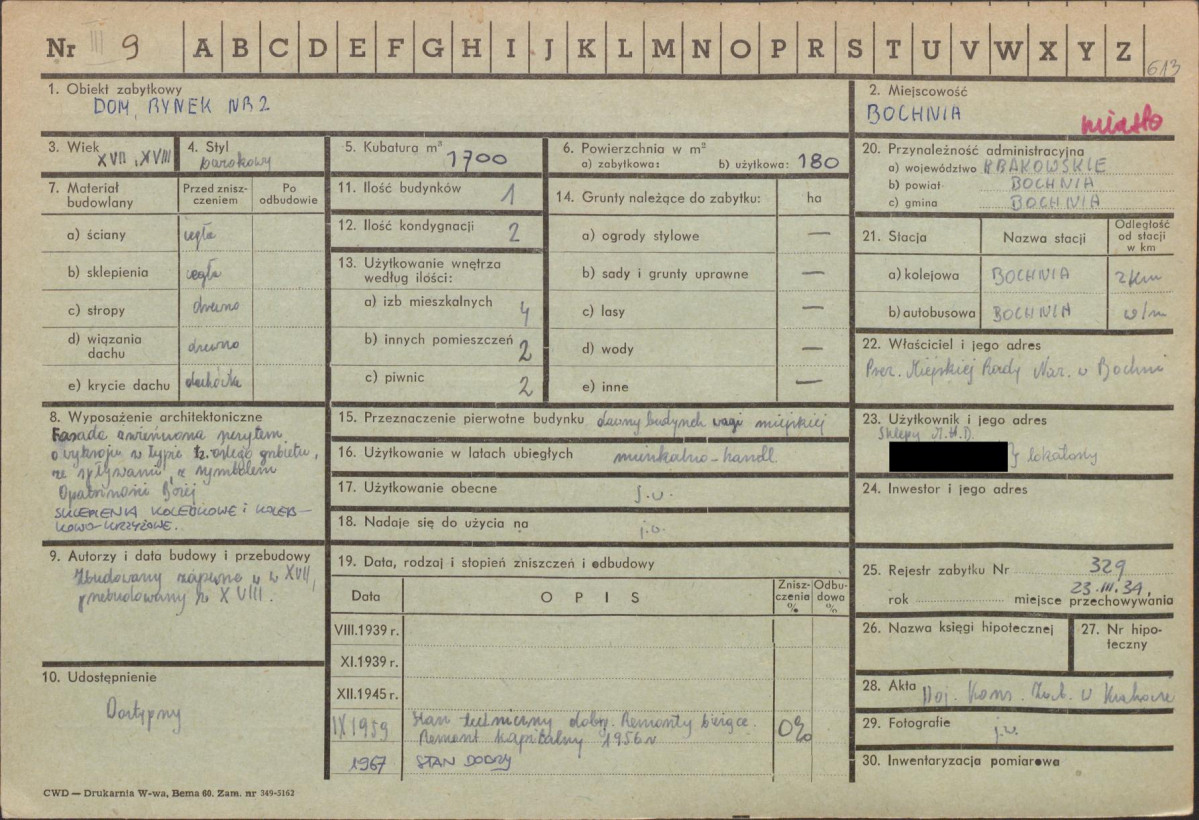 Nr III 9 A B C D E F G H I J K L M N O P R S T U V W X Y Z 613
1. Obiekt zabytkowy
DOM, RYNEK NR 2
2. Miejscowość
BOCHNIA
miasto
3. Wiek
XVII, XVIII
4. Styl
barokowy
5. Kubatura m³ 1700
6. Powierzchnia w m²
a) zabytkowa: b) użytkowa: 180
7. Materiał budowlany
Przed zniszczeniem
Po odbudowie
a) ściany cegła
b) sklepienia cegła
c) stropy drewno
d) wiązania dachu drewno
e) krycie dachu dachówka
8. Wyposażenie architektoniczne
Fasada zwieńczona
o wykroju w typie
ze spływami, z symbolem
Opatrzności Bożej
SKLEPIENIA KOLEBKOWE i KOLEB-
KOWO-KRZYŻOWE.
9. Autorzy i data budowy i przebudowy
Zbudowany zapewne w w XVII,
przebudowany w XVIII.
10. Udostępnienie
Dostępny
11. Ilość budynków 1
12. Ilość kondygnacji 2
13. Użytkowanie wnętrza
według ilości:
a) izb mieszkalnych 4
b) innych pomieszczeń 2
c) piwnic 2
14. Grunty należące do zabytku: ha
a) ogrody stylowe —
b) sady i grunty uprawne —
c) lasy —
d) wody —
e) inne —
15. Przeznaczenie pierwotne budynku dawny budynek wagi miejskiej
16. Użytkowanie w latach ubiegłych mieszkalno-handl
17. Użytkowanie obecne j.w.
18. Nadaje się do użycia na j.w.
19. Data, rodzaj i stopień zniszczeń i odbudowy
Data OPIS Zniszczenia % Odbudowa %
VIII.1939 r.
XI.1939 r.
XII.1945 r.
IX 1959 Stan techniczny dobry. Remonty bieżące. 0%
Remont kapitalny 1956 r
1967 STAN DOBRY
20. Przynależność administracyjna
a) województwo KRAKOWSKIE
b) powiat BOCHNIA
c) gmina BOCHNIA
21. Stacja
Nazwa stacji
Odległość od stacji w km
a) kolejowa BOCHNIA 2 km
b) autobusowa BOCHNIA w/m
22. Właściciel i jego adres
Prez. Miejskiej Rady Nar. w Bochni
23. Użytkownik i jego adres
Sklepy M.H.D.
lokatorzy
24. Inwestor i jego adres
25. Rejestr zabytku Nr 329
23.III.34,
rok miejsce przechowywania
26. Nazwa księgi hipotecznej
27. Nr hipoteczny
28. Akta Woj. Kons. Zab. w Krakowie
29. Fotografie j.w.
30. Inwentaryzacja pomiarowa
CWD — Drukarnia W-wa, Bema 60. Zam. nr 349-5162